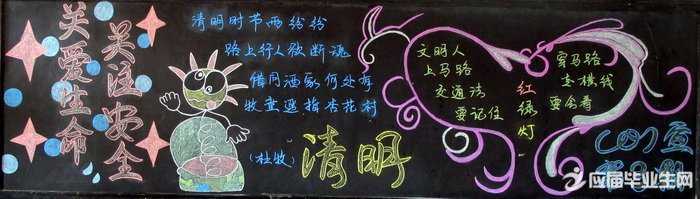 关爱生命
关注安全
清明时节雨纷纷
路上行人欲断魂
借问酒家何处有
牧童遥指杏花村
(杜牧)
清明
文明人
上马路
交通法
要记住
红绿灯
穿马路
走横线
要会看
应届毕业生网